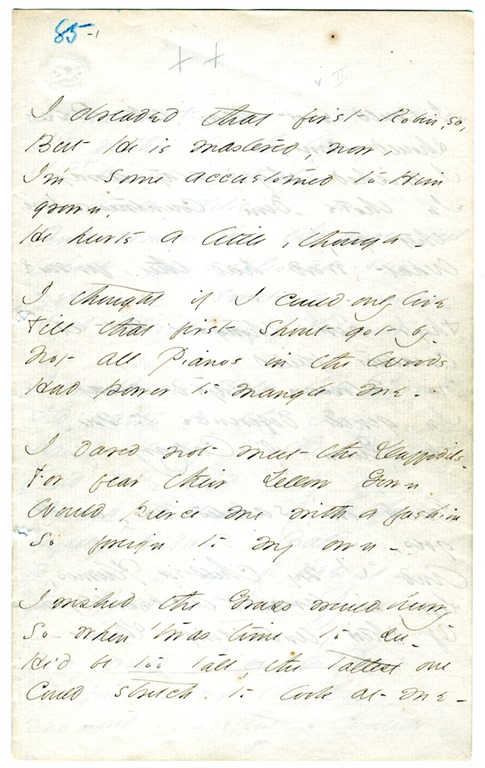 85-1
x x
v II
I dreaded that first Robin, so,
But He is mastered, now,
I'm some accustomed to Him
grown,
He hurts a little, though -
I thought if I could only live
Till that first Shout got by -
Not all Pianos in the Woods
Had power to mangle me -
I dared not meet the Daffodils -
For fear their Yellow Gown
Would pierce me with a fashion
So foreign to my own -
I wished the Grass would hurry
So when 'twas time to see -
He'd be too tall, the tallest one
Could stretch to look at me -